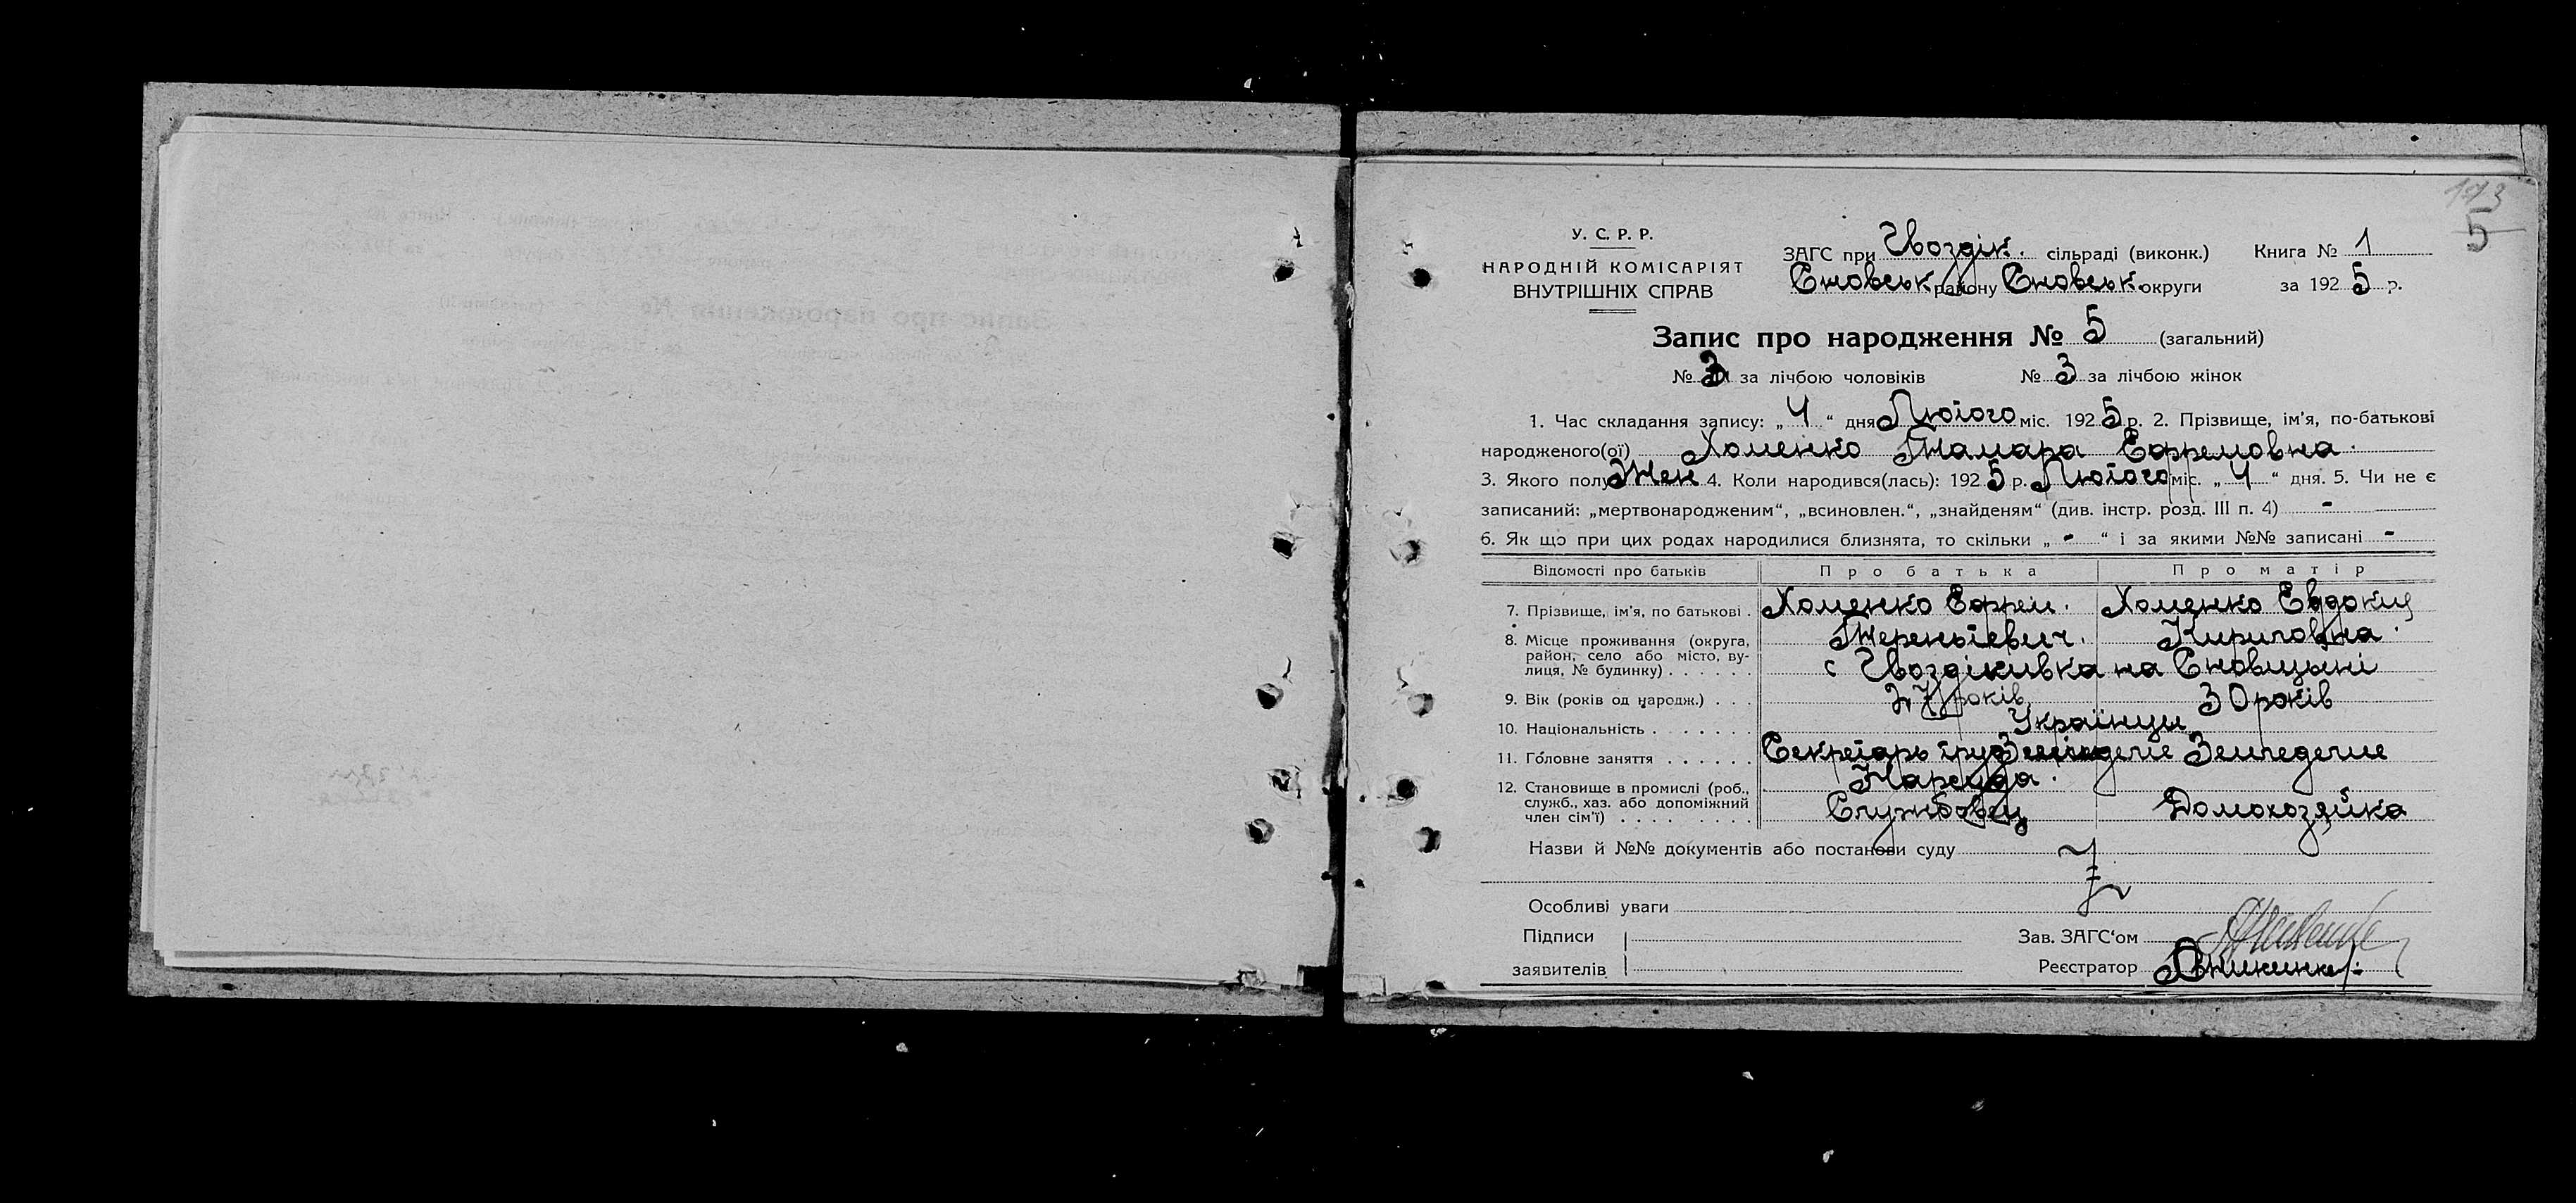 173
5
У. С. Р. Р.
НАРОДНІЙ КОМІСАРІЯТ
ВНУТРІШНІХ СПРАВ
ЗАГС при Гвоздік. сільраді (виконк.) Книга № 1
Сновськ району Сновськ. округи за 1925 р.
Запис про народження № 5 (загальний)
№ за лічбою чоловіків № 3 за лічбою жінок
1. Час складання запису: „ 4 “ дня Лютого міс. 1925 р. 2. Прізвище, ім’я, по-батькові
народженого(ої) Хоменко Тамара Ефремовна.
3. Якого полу Жен 4. Коли народився(лась): 1925 р. Лютого міс. „ 4 “ дня. 5. Чи не є
записаний: „мертвонародженим“, „всиновлен.“, „знайденям“ (див. інстр. розд. III п. 4) -
6. Як що при цих родах народилися близнята, то скільки „ - “ і за якими №№ записані -
Відомості про батьків Про батька Про матір
7. Прізвище, ім’я, по батькові . Хоменко Ефрем. Хоменко Евдокия
Терентієвич. Кириловна.
8. Місце проживання (округа,
район, село або місто, ву-
лиця, № будинку) . . . . . . с Гвоздіківка на Сновщині
9. Вік (років од народж.) . . . 27 років 30 років
10. Національність . . . . . . . Українцы
11. Головне заняття . . . . . . Секретарь Земледелие
Нарсуда.
12. Становище в промислі (роб.,
служб., хаз. або допоміжний
член сім’ї) . . . . . . . . Службовец Домохозяйка
Назви й №№ документів або постанови суду
Особливі уваги
Підписи
заявителів
Зав. ЗАГС‘ом
Реєстратор